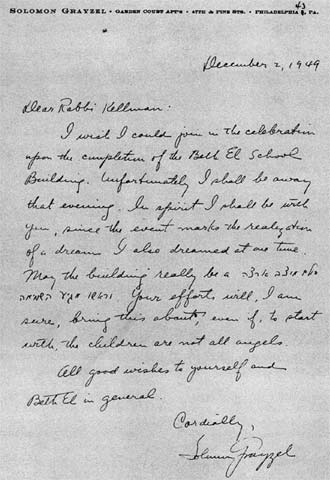 SOLOMON GRAYZEL • GARDEN COURT APT'S • 47TH & PINE STS. • PHILADELPHIA 43, PA.
December 2, 1949
Dear Rabbi Kellman:
I wish I could join in the celebration
upon the completion of the Beth El School
Building. Unfortunately I shall be away
that evening. In spirit I shall be with
you, since the event marks the realization
of a dream I also dreamed at one time.
May the building really be a סלם מוצב ארצה
וראשו מגיע השמימה. Your efforts will, I am
sure, bring this about, even if, to start
with, the children are not all angels.
All good wishes to yourself and
Beth El in general.
Cordially,
Solomon Grayzel